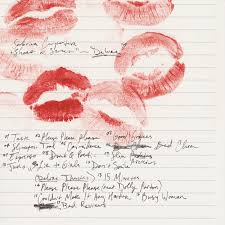 Sabrina Carpenter
Short n' Sweet — Deluxe
Taste Please Please Please Good Graces
Sharpest Tool Coincidence Bed Chem
Espresso Dumb & Poetic Slim Pickins
Juno Lie to Girls Don't Smile
(Deluxe Bonuses) 15 Minutes
Please Please Please (feat Dolly Parton)
Couldn't Make It Any Harder Busy Woman
Bad Reviews